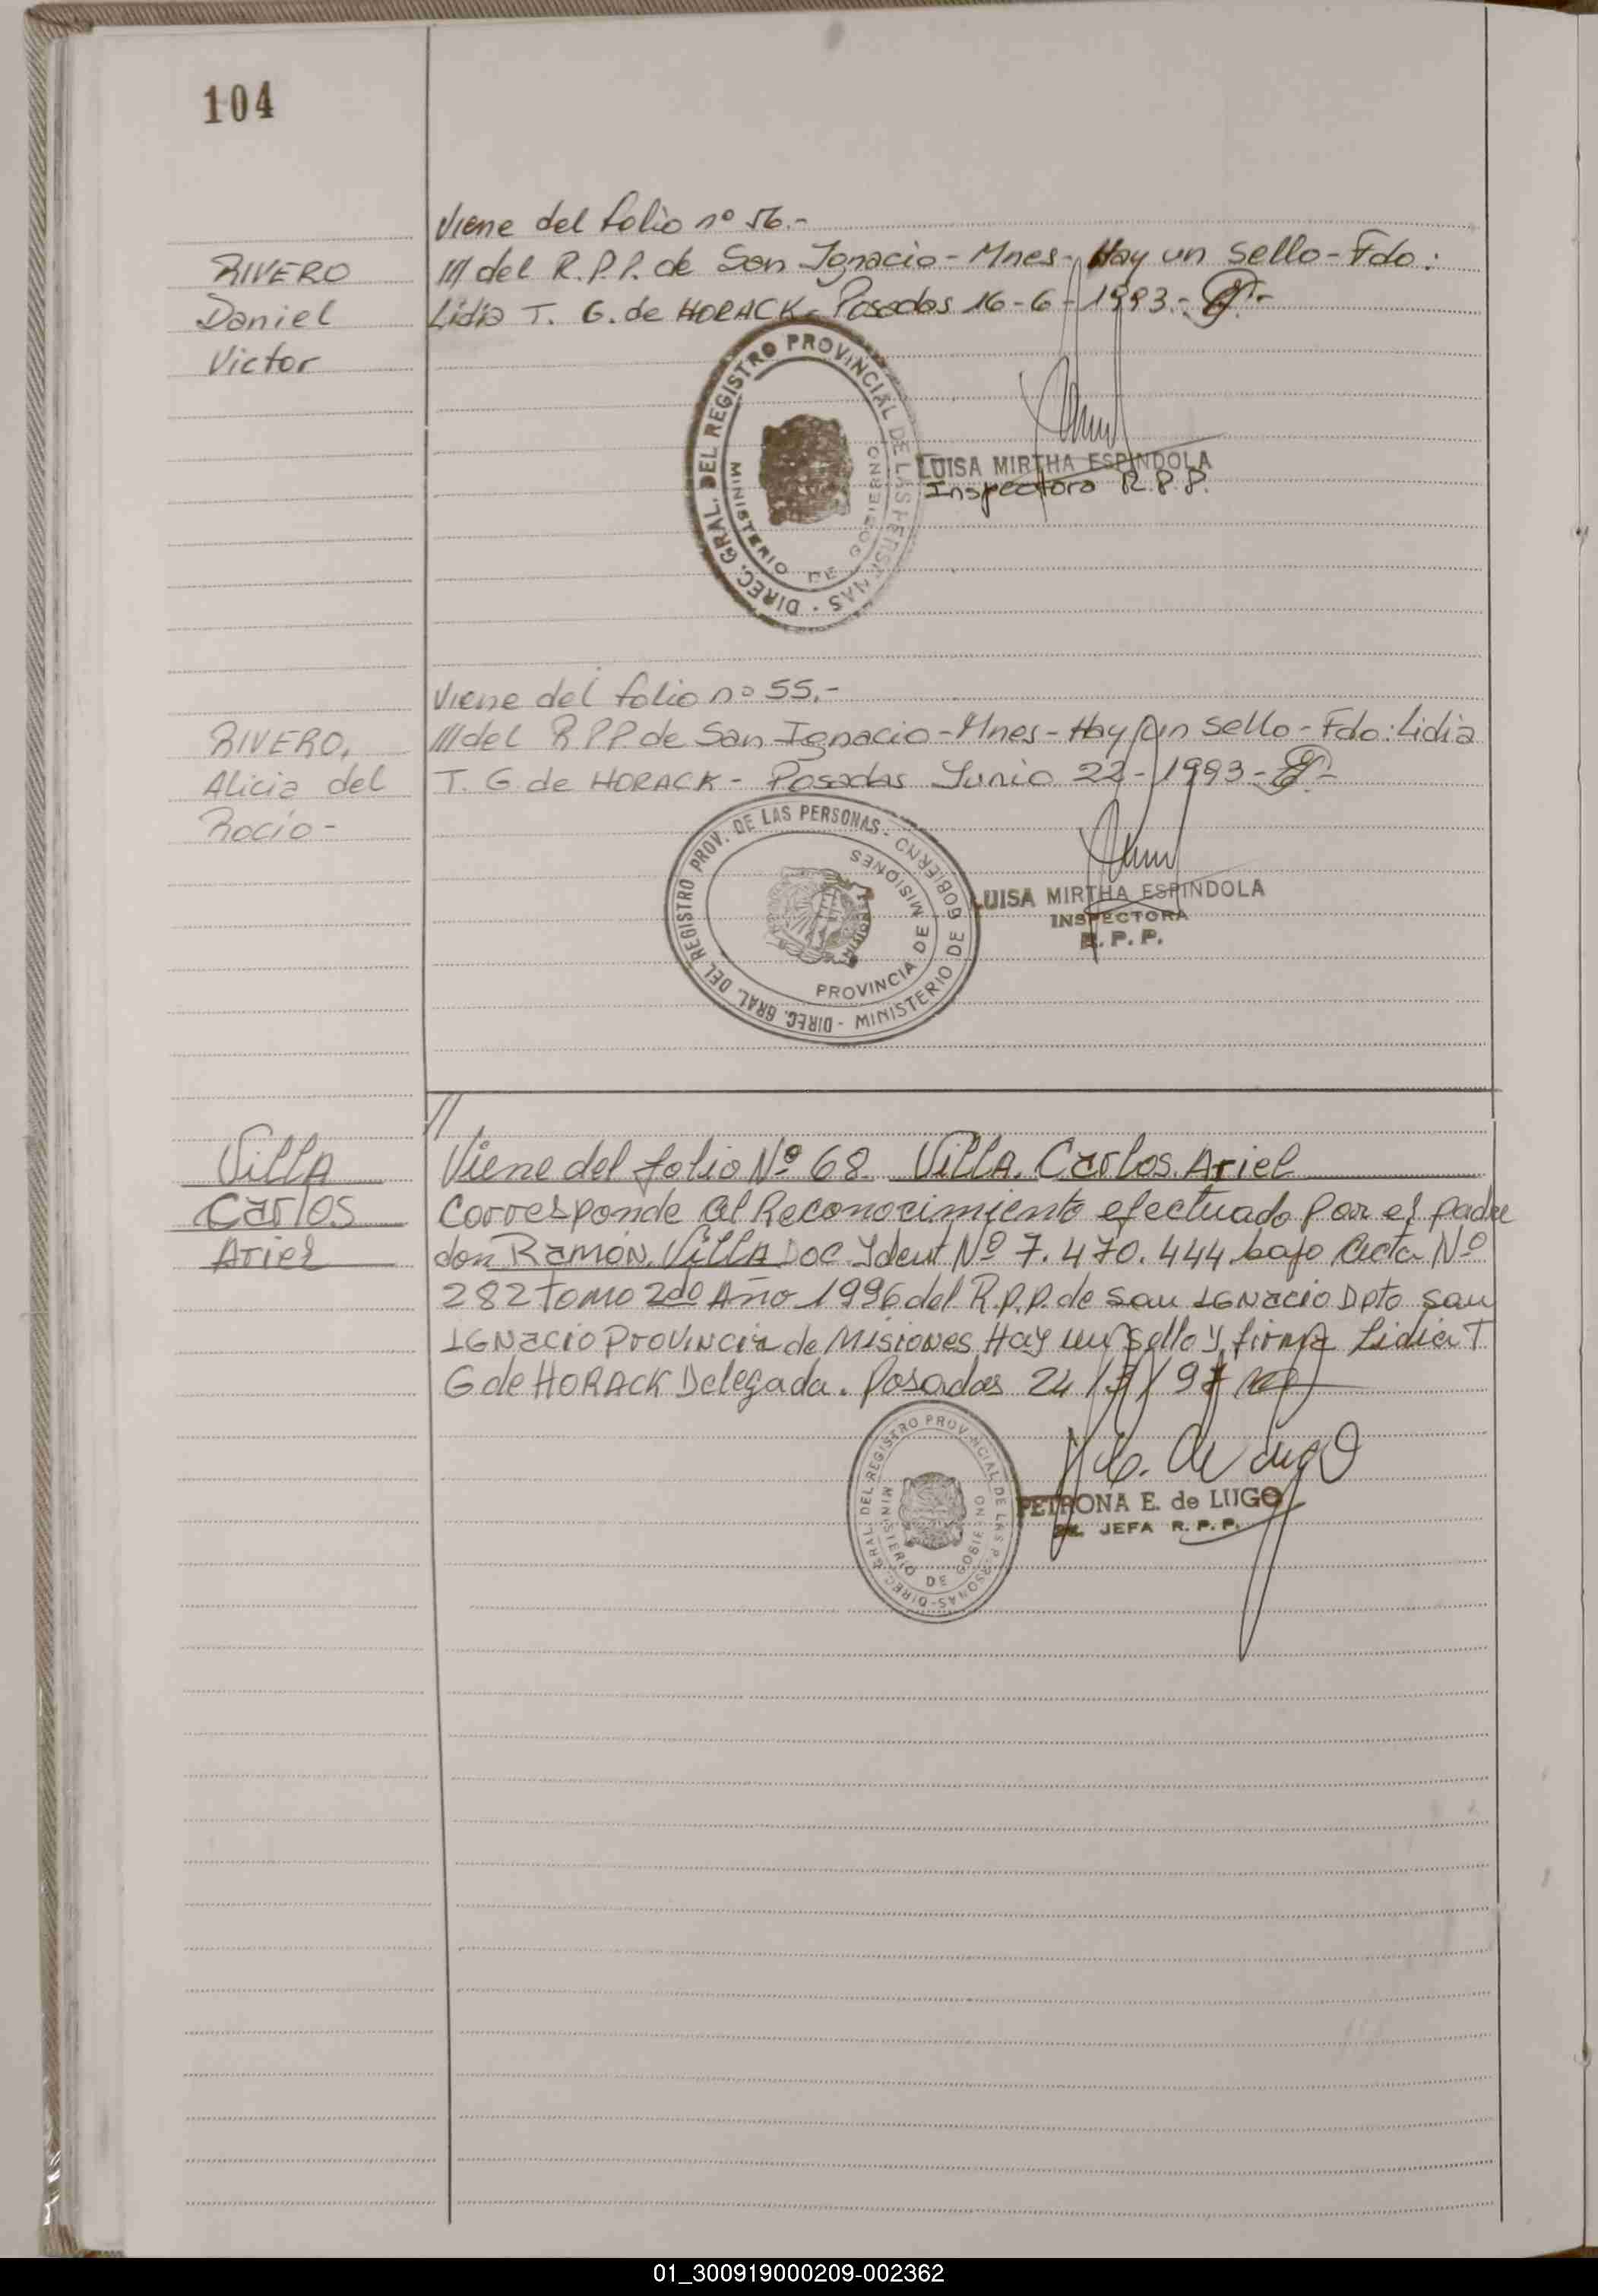 104
Viene del folio nº 56.-
RIVERO
Daniel
Victor
/// del R.P.P. de San Ignacio - Mnes - Hay un sello - Fdo:
Lidia T. G. de HORACK - Posadas 16-6-1993.-
DIREC. GRAL. DEL REGISTRO PROVINCIAL DE LAS PERSONAS
MINISTERIO DE GOBIERNO
LUISA MIRTHA ESPINDOLA
Inspectora R.P.P.
Viene del folio nº 55.-
RIVERO,
Alicia del
Rocío -
/// del R P P. de San Ignacio - Mnes - Hay un sello - Fdo: Lidia
T. G. de HORACK - Posadas Junio 22-1993-
DIREC. GRAL. DEL REGISTRO PROV. DE LAS PERSONAS - MINISTERIO DE GOBIERNO
PROVINCIA DE MISIONES
LUISA MIRTHA ESPINDOLA
INSPECTORA
R. P. P.
//
Villa
Carlos
Ariel
Viene del folio Nº 68. Villa. Carlos. Ariel
Corresponde al Reconocimiento efectuado por el padre
don Ramón. Villa Doc. Ident Nº 7.470.444 bajo Acta Nº
282 tomo 2do Año 1996 del R.P.P. de San Ignacio Dpto San
Ignacio Provincia de Misiones Hay un sello y firma Lidia T
G de HORACK Delegada. Posadas 24/3/97
DIREC. GRAL DEL REGISTRO PROVINCIAL DE LAS PERSONAS
MINISTERIO DE GOBIERNO
PETRONA E. de LUGO
JEFA R.P.P.
01_300919000209-002362